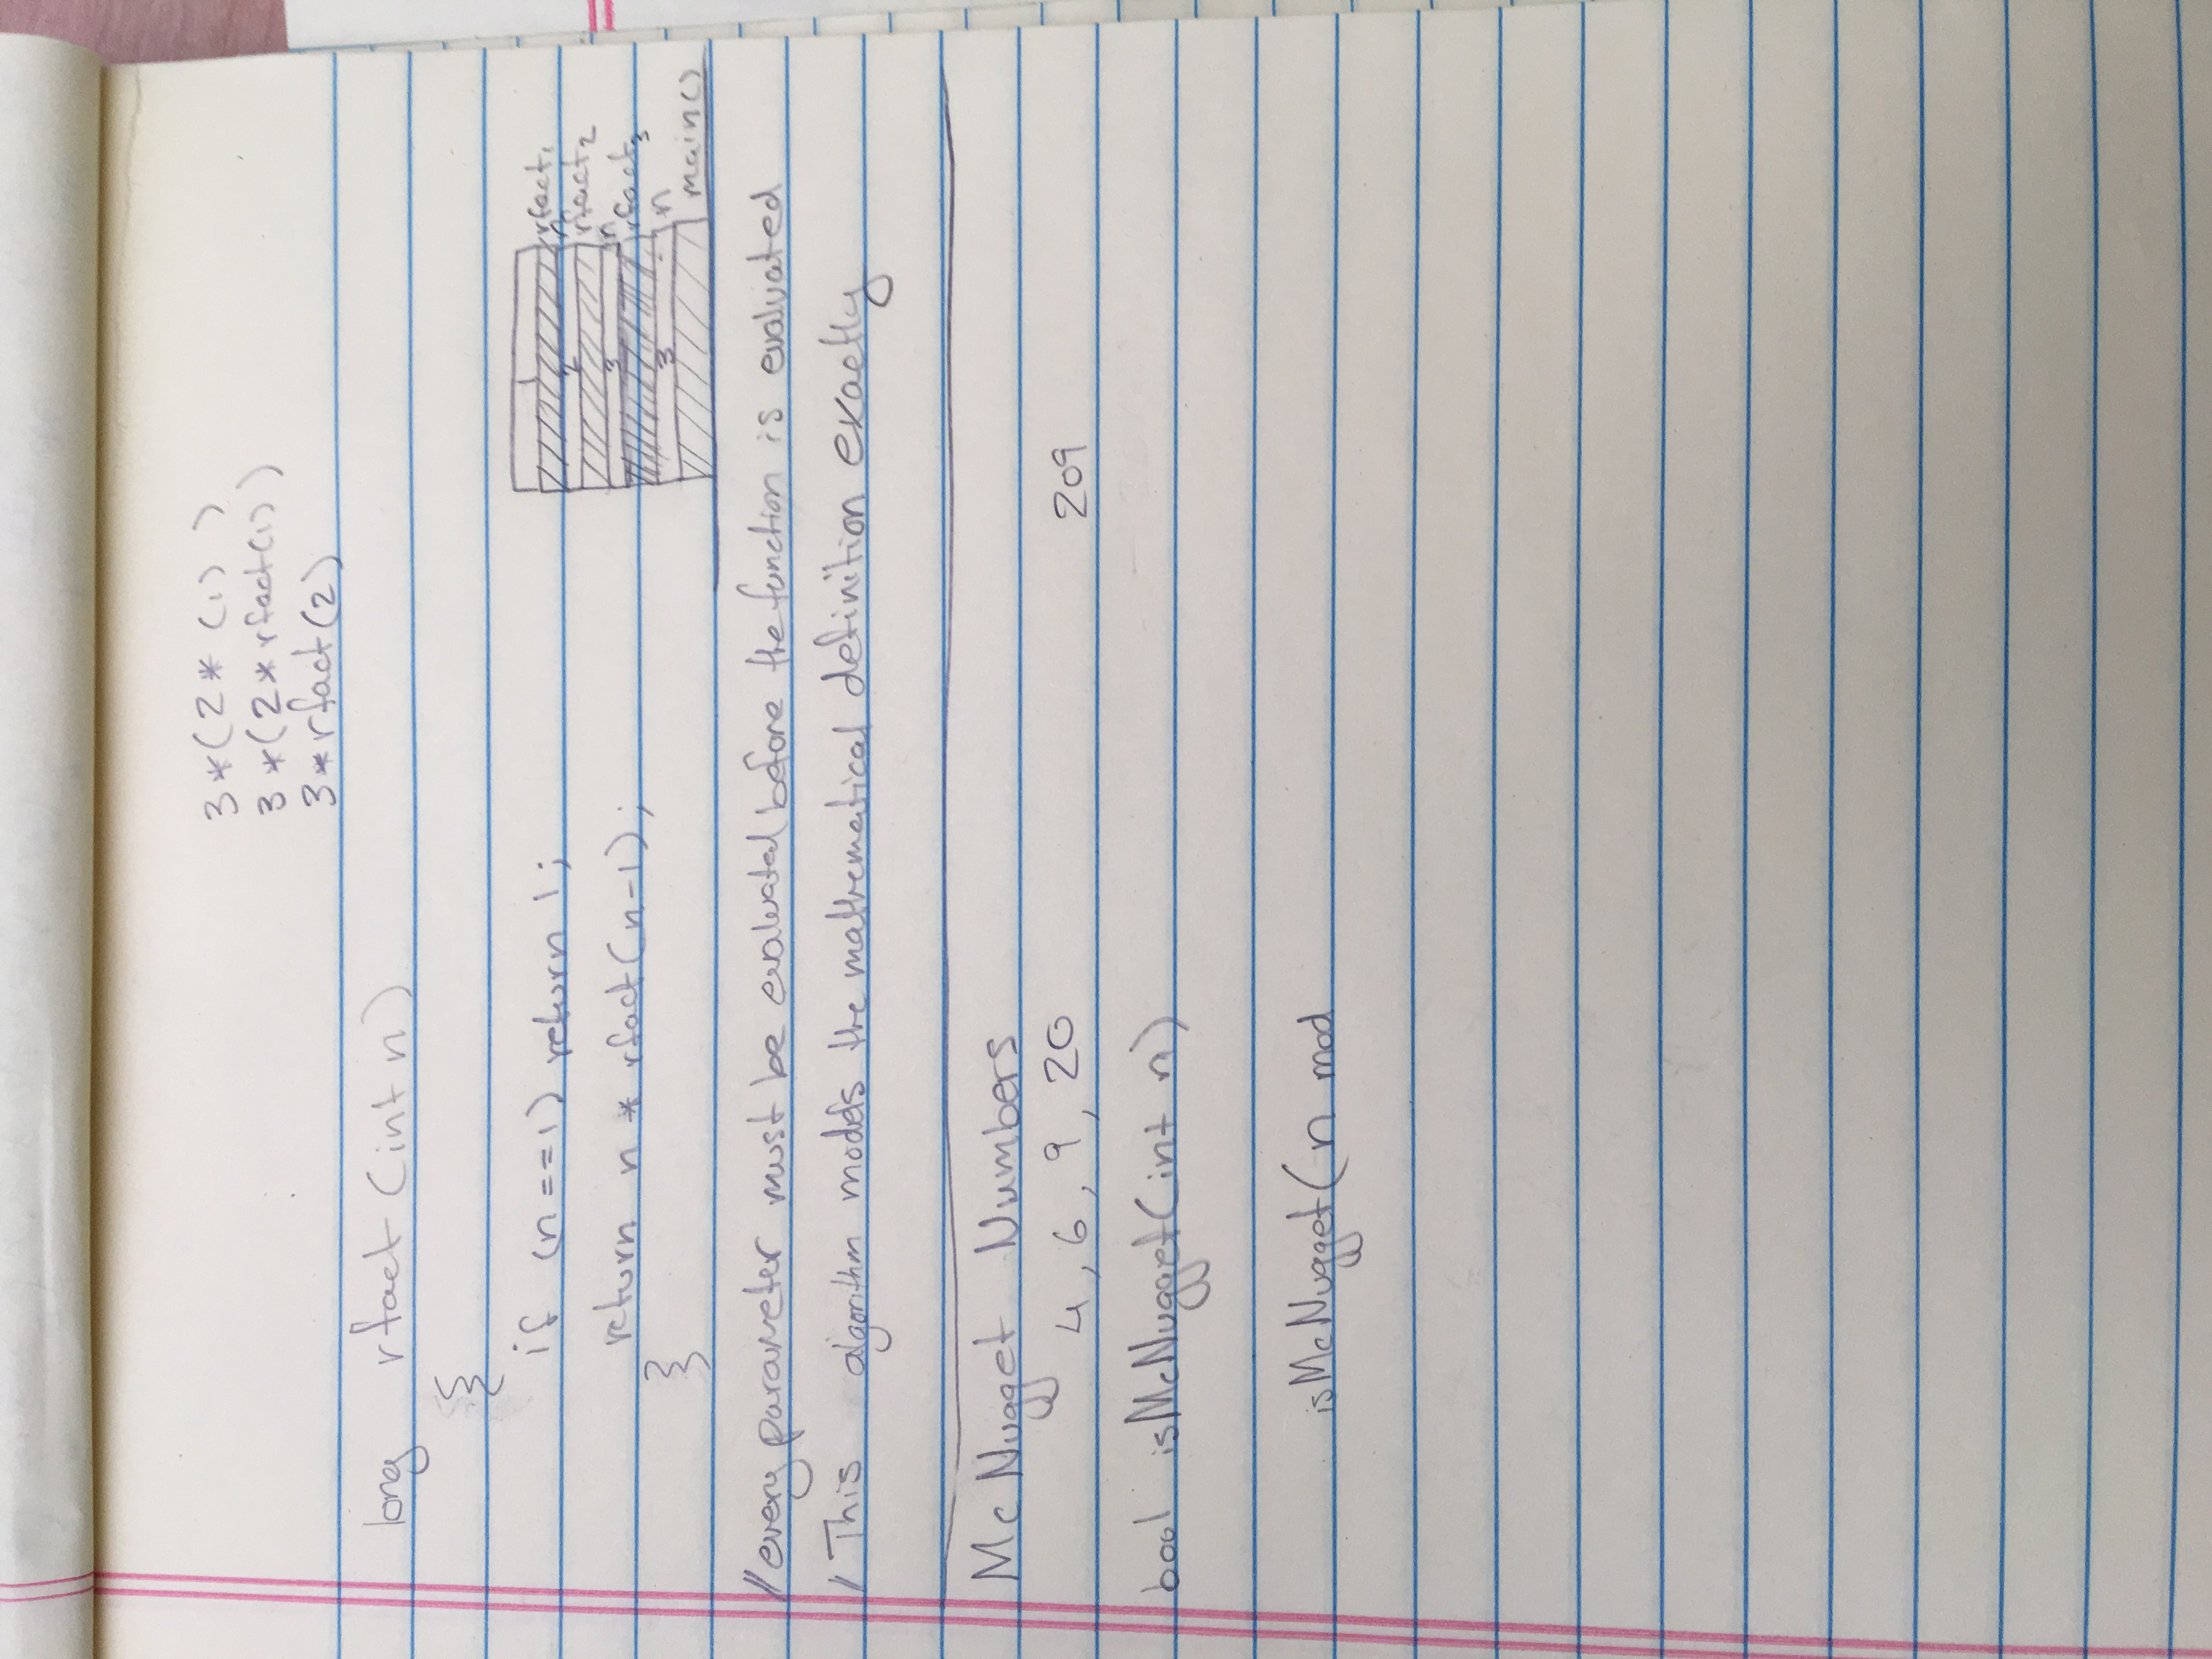 3*(2*(1) )
3*(2*rfact(1))
3*rfact(2)
long rfact (int n)
{
if (n==1) return 1;
return n * rfact(n-1);
}
1
rfact1
n
2
rfact2
n
3
rfact3
n
3
main()
//every parameter must be evaluated before the function is evaluated
// This algorithm models the mathematical definition exactly
McNugget Numbers
4, 6, 9, 20 209
bool isMcNugget(int n)
isMcNugget(n mod